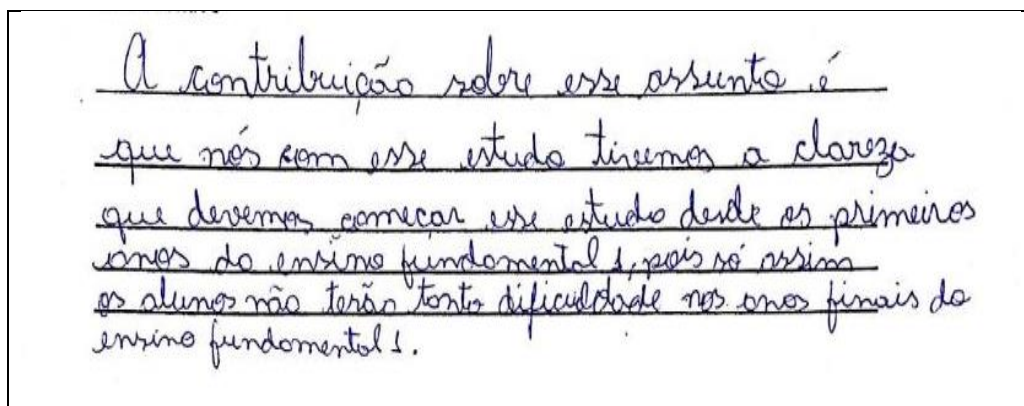 A contribuição sobre esse assunto é
que nós com esse estudo tivemos a clareza
que devemos começar esse estudo desde os primeiros
anos do ensino fundamental 1, pois só assim
os alunos não terão tanta dificuldade nos anos finais do
ensino fundamental 1.